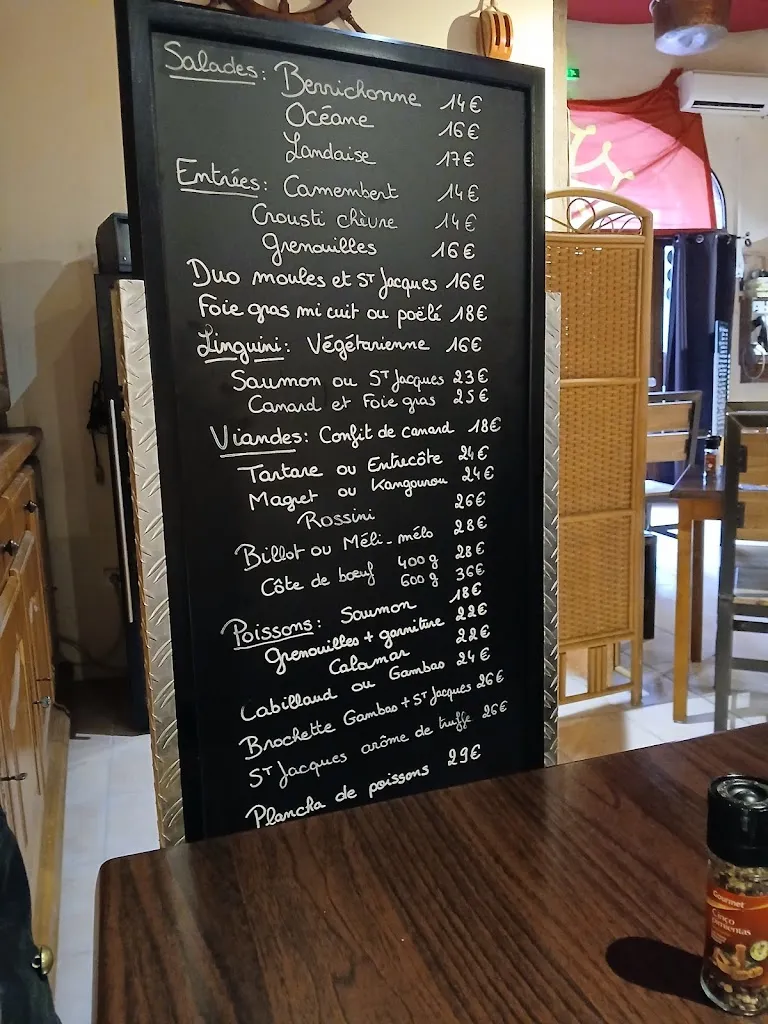 Salades: Berrichonne 14€
Océane 16€
Landaise 17€
Entrées: Camembert 14€
Crousti chèvre 14€
Grenouilles 16€
Duo moules et ST Jacques 16€
Foie gras mi cuit ou poëlé 18€
Linguini: Végétarienne 16€
Saumon ou ST Jacques 23€
Canard et Foie gras 25€
Viandes: Confit de canard 18€
Tartare ou Entrecôte 24€
Magret ou Kangourou 24€
Rossini 26€
Billot ou Méli-mélo 28€
Côte de bœuf 400g 28€
600g 36€
Poissons: Saumon 18€
Grenouilles + garniture 22€
Calamar 22€
Cabillaud ou Gambas 24€
Brochette Gambas + ST Jacques 26€
ST Jacques arôme de truffe 26€
Plancha de poissons 29€
Gourmet
Cinco
pimientas